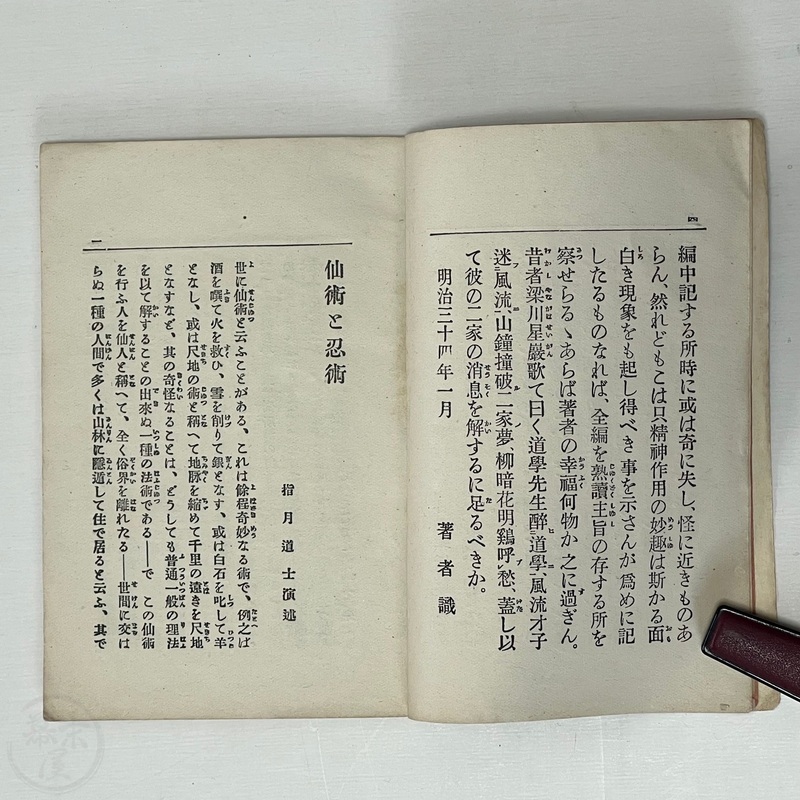 四
編中記する所時に或は奇に失し、怪に近きものあ
らん、然れどもこは只精神作用の妙趣は斯かる面
白き現象をも起し得べき事を示さんが為めに記
したるものなれば、全編を熟讀主旨の存する所を
察せらるゝあらば著者の幸福何物か之に過ぎん。
昔者梁川星巖歌て曰く道學先生醉道學、風流才子
迷風流、山鐘撞破二家夢、柳暗花明鷄呼愁、蓋し以
て彼の二家の消息を解するに足るべきか。
明治三十四年一月
著者識
一
仙術と忍術
指月道士演述
世に仙術と云ふことがある、これは餘程奇妙なる術で、例之ば
酒を噀て火を救ひ、雪を削りて銀となす、或は白石を叱して羊
となし、或は尺地の術と稱へて地脉を縮めて千里の遠きを尺地
となすなど、其の奇怪なることは、どうしても普通一般の理法
を以て解することの出來ぬ一種の法術である――で この仙術
を行ふ人を仙人と稱へて、全く俗界を離れたる――世間に変は
らぬ一種の人間で多くは山林に隱遁して住で居ると云ふ、其で